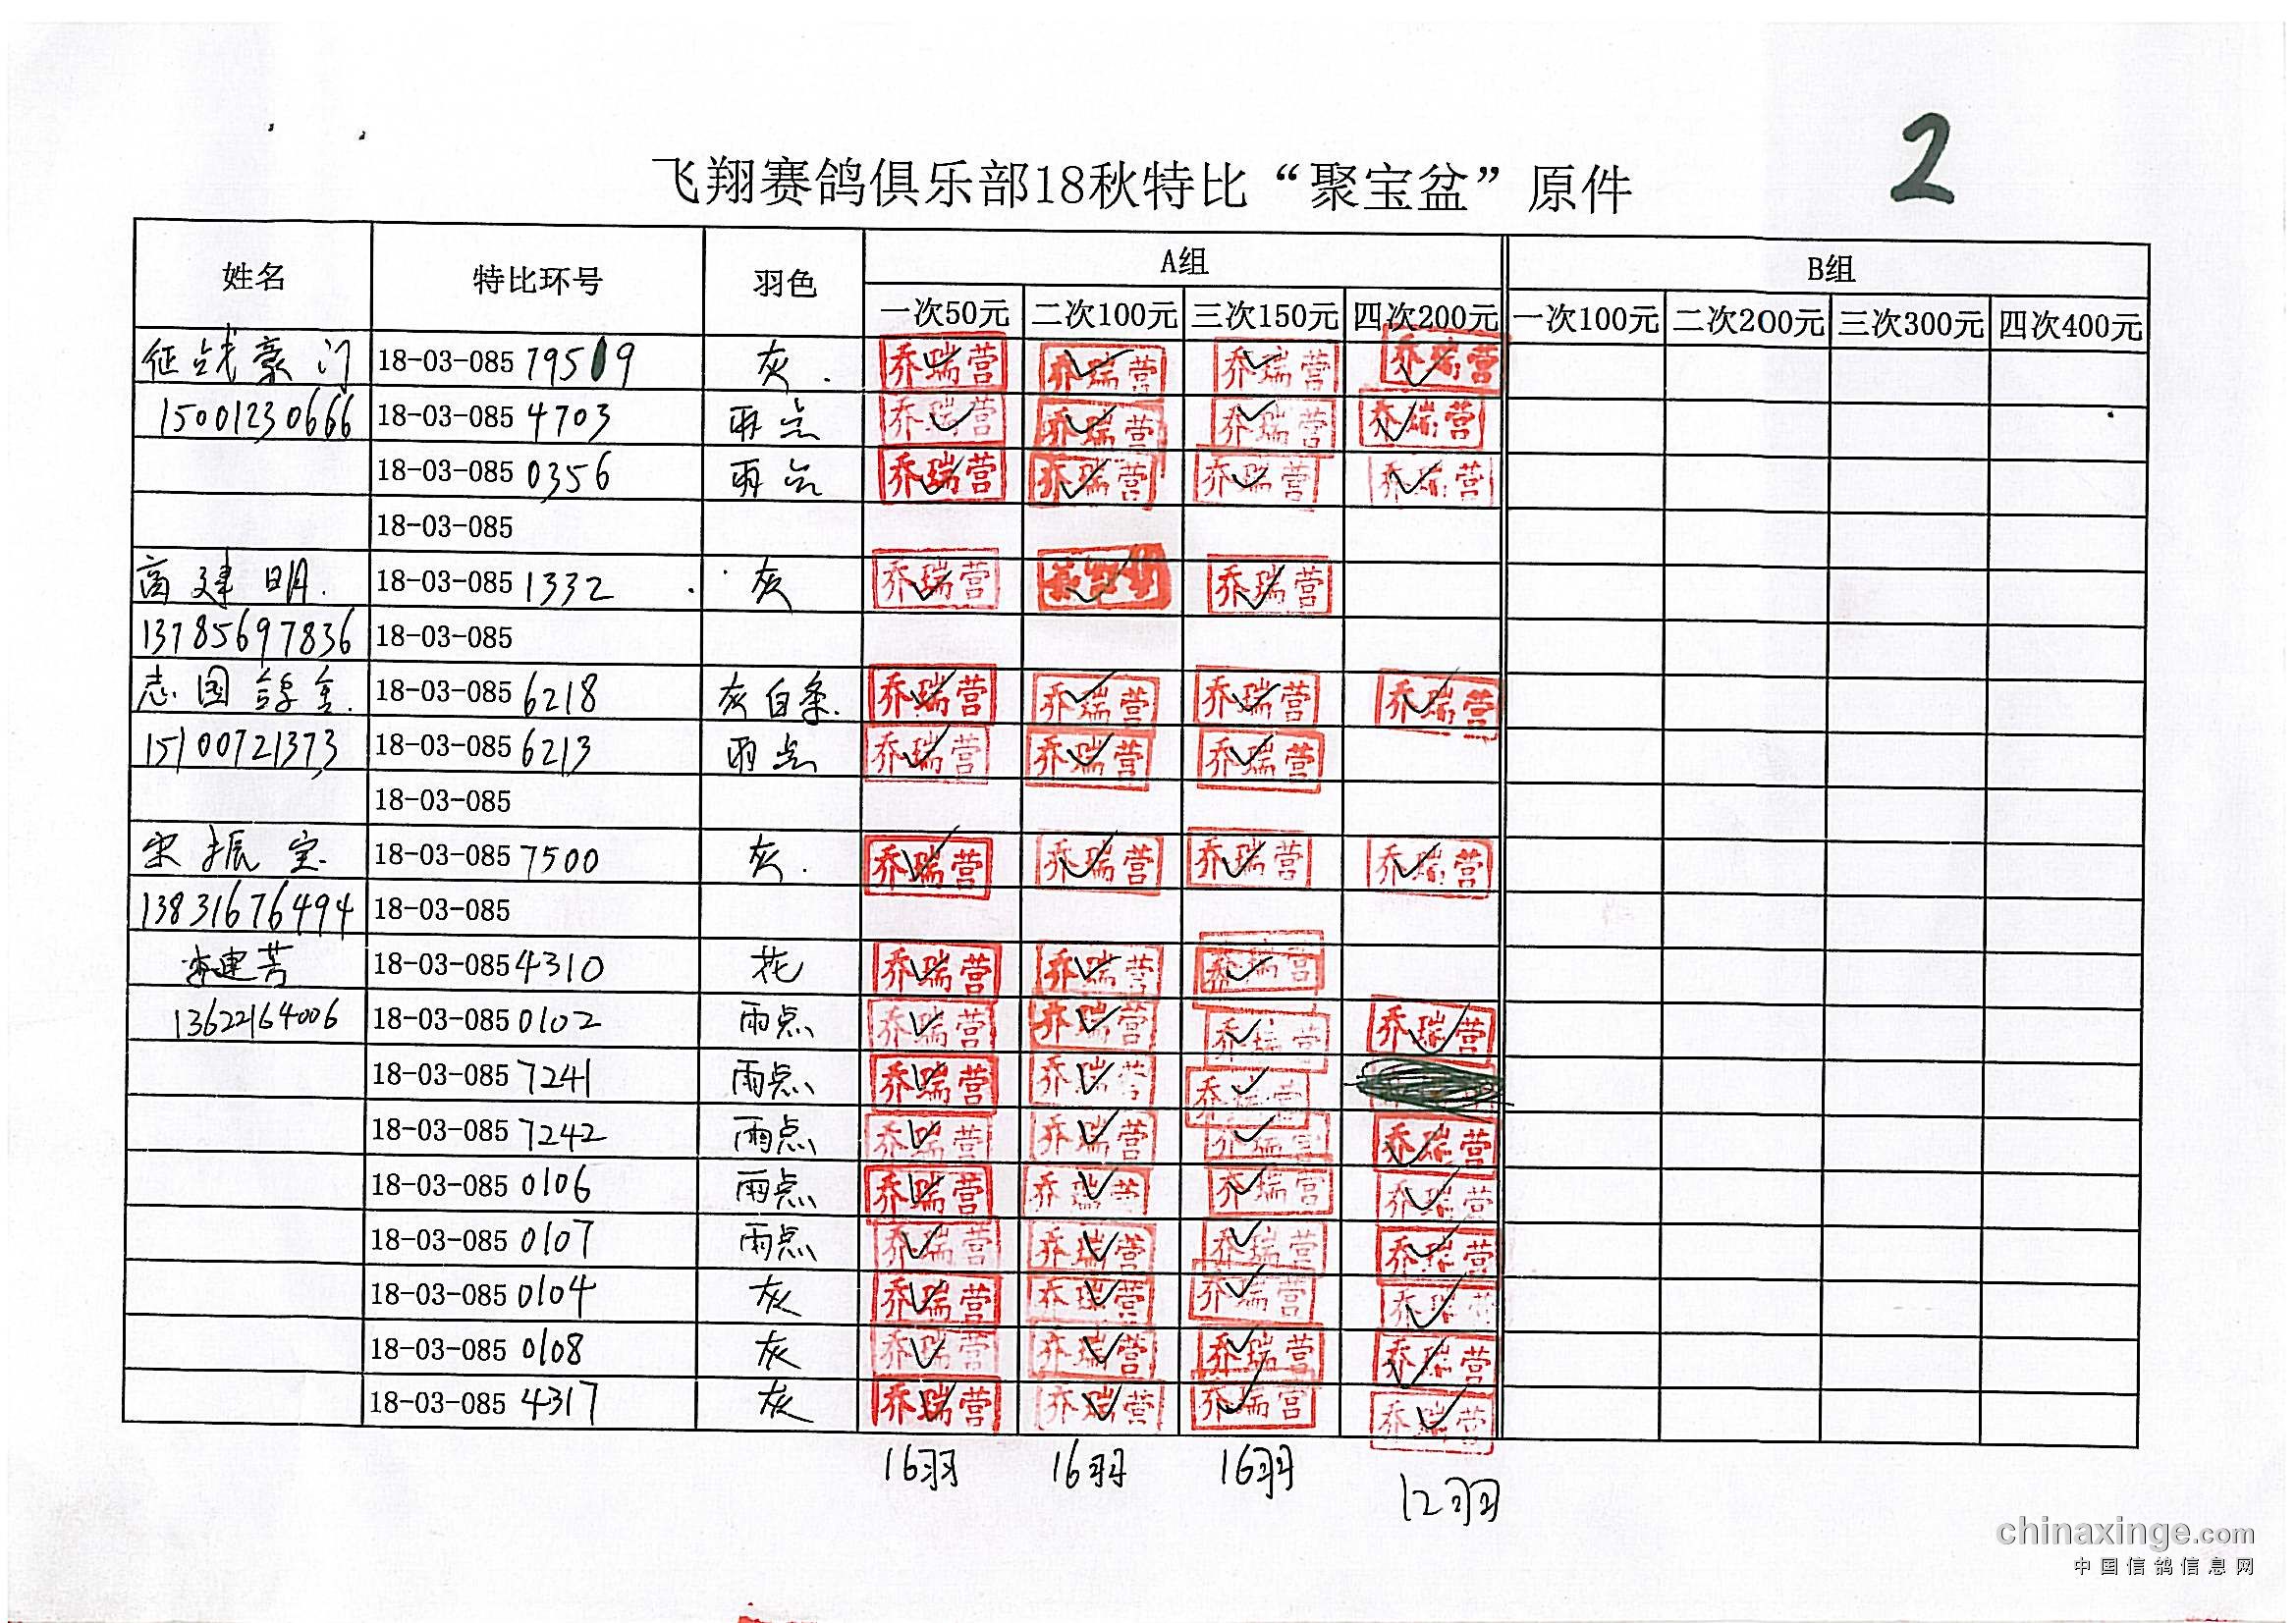 2
飞翔赛鸽俱乐部18秋特比“聚宝盆”原件
姓名 特比环号 羽色 A组 B组
一次50元 二次100元 三次150元 四次200元 一次100元 二次200元 三次300元 四次400元
征战豪门 18-03-085 79519 灰. 乔瑞营 乔瑞营 乔瑞营 乔瑞营
15001230666 18-03-085 4703 雨点 乔瑞营 乔瑞营 乔瑞营 乔瑞营
18-03-085 0356 雨点 乔瑞营 乔瑞营 乔瑞营 乔瑞营
18-03-085
高建明. 18-03-085 1332 灰 乔瑞营 乔瑞营
13785697836 18-03-085
志国 18-03-085 6218 灰白条. 乔瑞营 乔瑞营 乔瑞营 乔瑞营
15100721373 18-03-085 6213 雨点 乔瑞营 乔瑞营 乔瑞营
18-03-085
宋振宝 18-03-085 7500 灰. 乔瑞营 乔瑞营 乔瑞营 乔瑞营
13831676494 18-03-085
李建芳 18-03-085 4310 花 乔瑞营 乔瑞营 乔瑞营
13622164006 18-03-085 0102 雨点 乔瑞营 乔瑞营 乔瑞营 乔瑞营
18-03-085 7241 雨点 乔瑞营 乔瑞营 乔瑞营
18-03-085 7242 雨点 乔瑞营 乔瑞营 乔瑞营 乔瑞营
18-03-085 0106 雨点 乔瑞营 乔瑞营 乔瑞营 乔瑞营
18-03-085 0107 雨点 乔瑞营 乔瑞营 乔瑞营 乔瑞营
18-03-085 0104 灰 乔瑞营 乔瑞营 乔瑞营 乔瑞营
18-03-085 0108 灰 乔瑞营 乔瑞营 乔瑞营 乔瑞营
18-03-085 4317 灰 乔瑞营 乔瑞营 乔瑞营 乔瑞营
16羽 16羽 16羽 12羽
chinaxinge.com
中国信鸽信息网